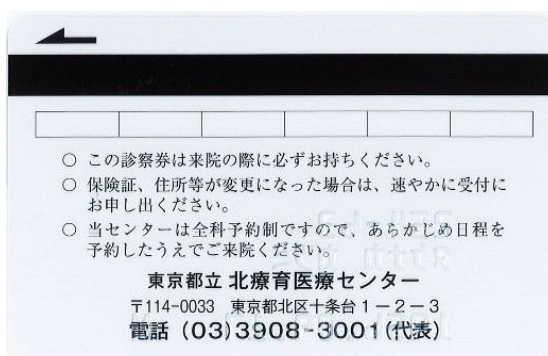 ○ この診察券は来院の際に必ずお持ちください。
○ 保険証、住所等が変更になった場合は、速やかに受付に
お申し出ください。
○ 当センターは全科予約制ですので、あらかじめ日程を
予約したうえでご来院ください。
東京都立 北療育医療センター
〒114-0033 東京都北区十条台1-2-3
電話 (03)3908-3001(代表)